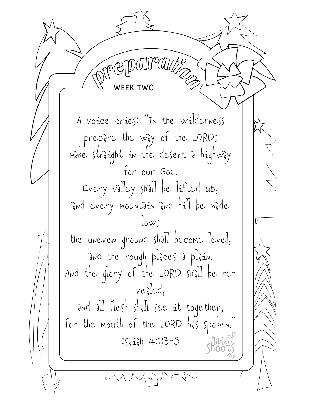 preparation
WEEK TWO
A voice cries: "In the wilderness
prepare the way of the LORD;
make straight in the desert a highway
for our God.
Every valley shall be lifted up,
and every mountain and hill be made
low;
the uneven ground shall become level,
and the rough places a plain.
And the glory of the LORD shall be re-
vealed,
and all flesh shall see it together,
for the mouth of the LORD has spoken."
Isaiah 40:3-5